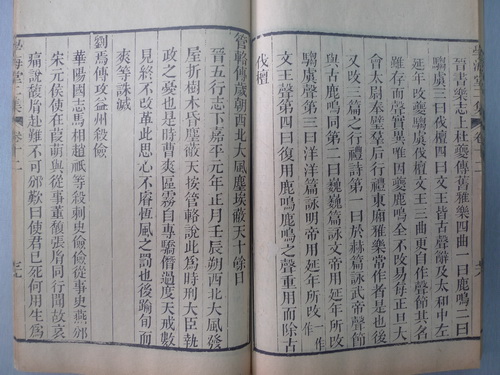 晉書樂志杜夔傳舊雅樂四曲一曰鹿鳴二曰
騶虞三曰伐檀四曰文王皆古聲辭及太和中左
延年改夔騶虞伐檀文王三曲更自作聲節其名
雖存而聲實異唯因夔鹿鳴全不改易每正旦大
會太尉奉璧羣后行禮東廂雅樂常作者是也後
又改三篇之行禮詩第一曰於赫篇詠武帝聲節
與古鹿鳴同第二曰巍巍篇詠文帝用延年所改
騶虞聲第三曰洋洋篇詠明帝用延年所改作
文王聲第四曰復用鹿鳴鹿鳴之聲重用而除古
伐檀
管輅傳歲朝西北大風塵埃蔽天十餘日
晉五行志下嘉平元年正月壬辰朔西北大風發
屋折樹木昏塵蔽天按管輅說此爲時刑大臣執
政之憂也是時曹爽區霿自專驕僭過度天戒數
見終不改革此思心不睿恆風之罰也後踰旬而
爽等誅滅
劉焉傳攻益州殺儉
華陽國志馬相趙祗等殺刺史儉儉從事史燕邠
宋元侯使在葭萌與從事董馥張胤同行聞故哀
痛說馥胤赴難不可邠歎曰使君已死何用生爲
學海堂二集
卷十二